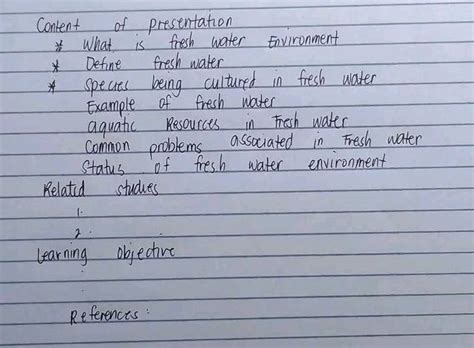 Content of presentation
* What is fresh water Environment
* Define fresh water
* Species being cultured in fresh water
Example of fresh water
aquatic Resources in Fresh water
Common problems associated in Fresh water
Status of fresh water environment
Related studies
1.
2.
Learning objective
References: